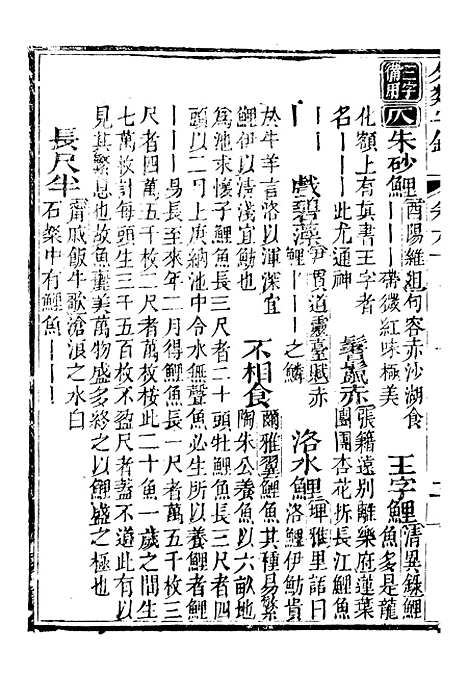 三字備用
八朱砂鯉 酉陽雜俎句容赤沙湖食
｜｜｜帶微紅味極美
王字鯉 清異錄鯉魚多是龍
化額上有眞書王字者
名｜｜｜此尤通神
鬐鬣赤 張籍遠別離樂府蓮葉
團團杏花拆長江鯉魚
｜｜｜
戲碧藻 伊贯道靈臺賦赤
鯉｜｜｜之鱗
洛水鯉 埤雅里語曰
洛鯉伊魴貴
於牛羊言洛以渾深宜
鯉伊以淸淺宜魴也
不相食 爾雅翼鯉魚其種易繁
陶朱公養魚以六畝地
爲池求懷子鯉魚長三尺者二十頭牡鯉魚長三尺者四
頭以二月上庚納池中令水無聲魚必生所以養鯉者鯉
｜｜｜易長至來年二月得鯉魚長一尺者萬五千枚三
尺者萬五千枚二尺者萬枚按此二十魚一歲之間生
七萬枚許計每頭生三千五百枚不盈尺者蓋不道此又
見其蕃息也故魚麗美萬物盛多終之以鰋鯉盛之極也
長尺半 甯戚飯牛歌滄浪之水白
石粲中有鯉魚｜｜｜